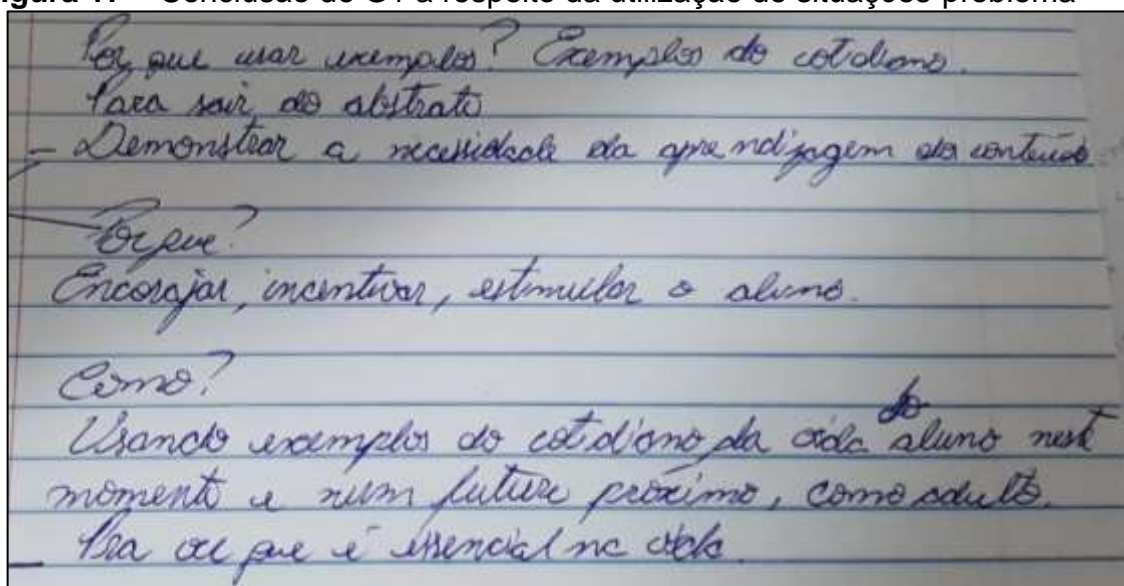 Conclusão do G1 a respeito da utilização de situações-problema
Por que usar exemplos? Exemplos do cotidiano.
Para sair do abstrato
- Demonstrar a necessidade da aprendizagem do conteúdo
Por que?
Encorajar, incentivar, estimular o aluno.
Como?
Usando exemplos do cotidiano da vida do aluno neste
momento e num futuro próximo, como adulto.
que é essencial na vida.